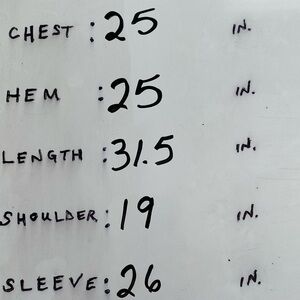 CHEST : 25 IN.
HEM : 25 IN.
LENGTH : 31.5 IN.
SHOULDER : 19 IN.
SLEEVE : 26 IN.